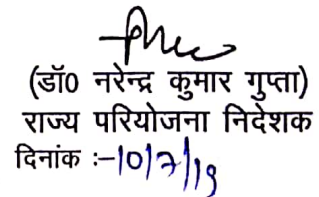 (डॉ0 नरेन्द्र कुमार गुप्ता)
राज्य परियोजना निदेशक
दिनांक :-10/7/19